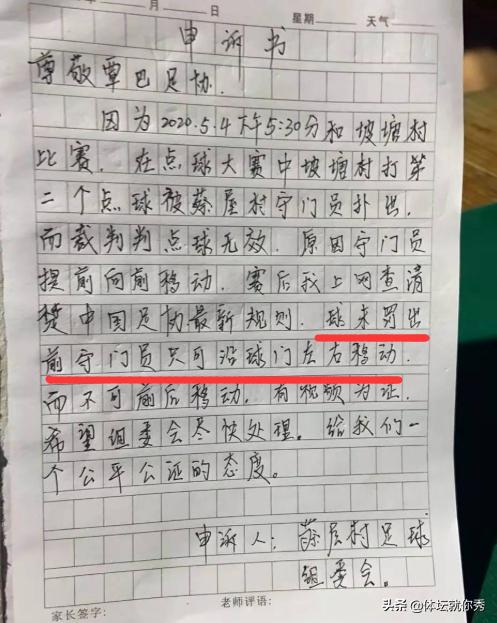 年 月 日 星期 天气
申诉书
尊敬覃巴足协.
因为2020.5.4下午5:30分和坡塘村
比赛. 在点球大赛中坡塘村打第
二个点球被蔡屋村守门员扑出.
而裁判判点球无效. 原因守门员
提前向前移动. 赛后我上网查清
楚中国足协最新规则. 球未罚出
前守门员只可沿球门左右移动.
而不可前后移动. 有视频为证.
希望组委会尽快处理。给我们一
个公平公证的态度。
申诉人: 蔡屋村足球
组委会.
家长签字: 老师评语:
头条 @体坛就你秀